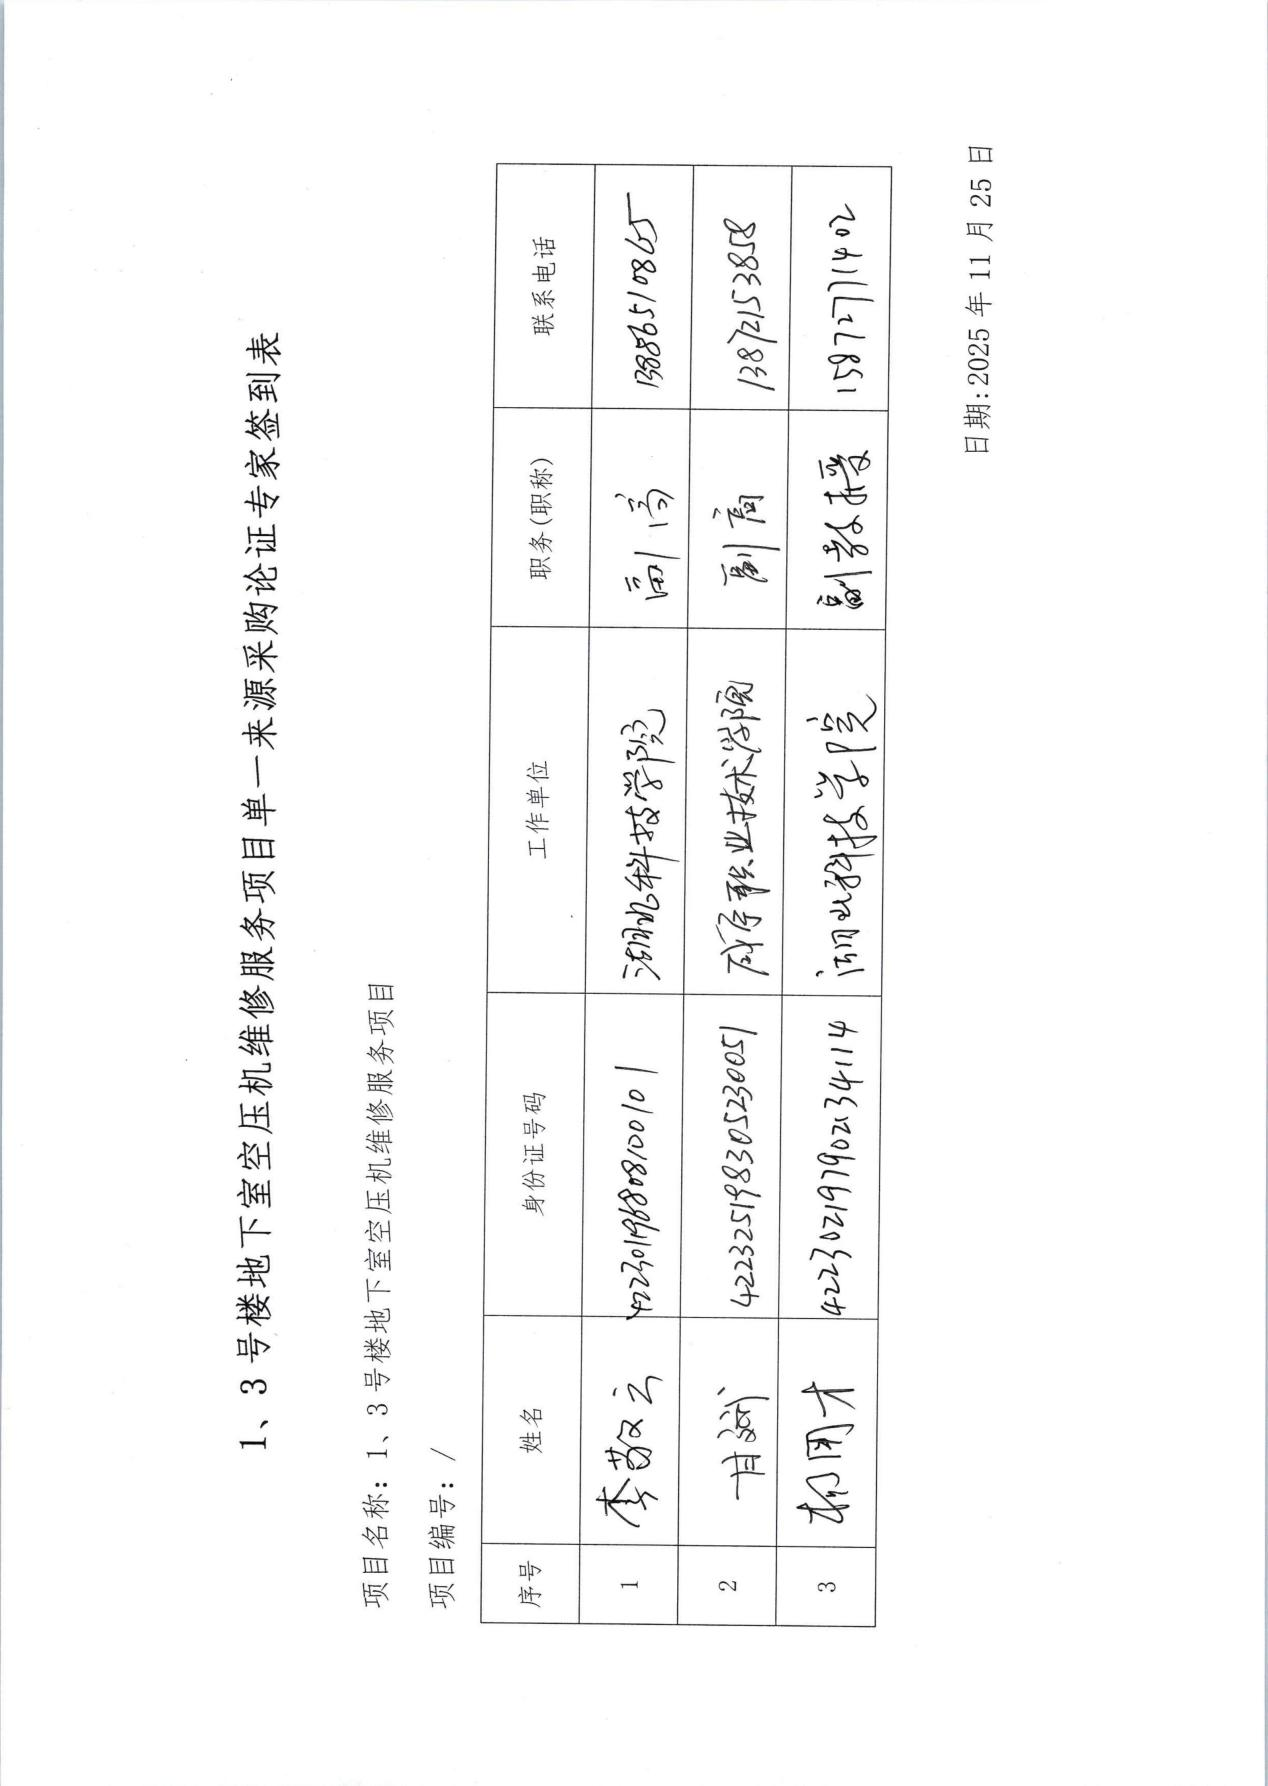 1、3号楼地下室空压机维修服务项目单一来源采购论证专家签到表
项目名称：1、3号楼地下室空压机维修服务项目
项目编号：/
序号 姓名 身份证号码 工作单位 职务(职称) 联系电话
1 李敬云 422301196808100101 湖北科技学院 副高 13886510865
2 422325198305230051 咸宁职业技术学院 副高 13872153858
3 422302197902134114 湖北科技学院 副教授 15872771402
日期：2025年11月25日